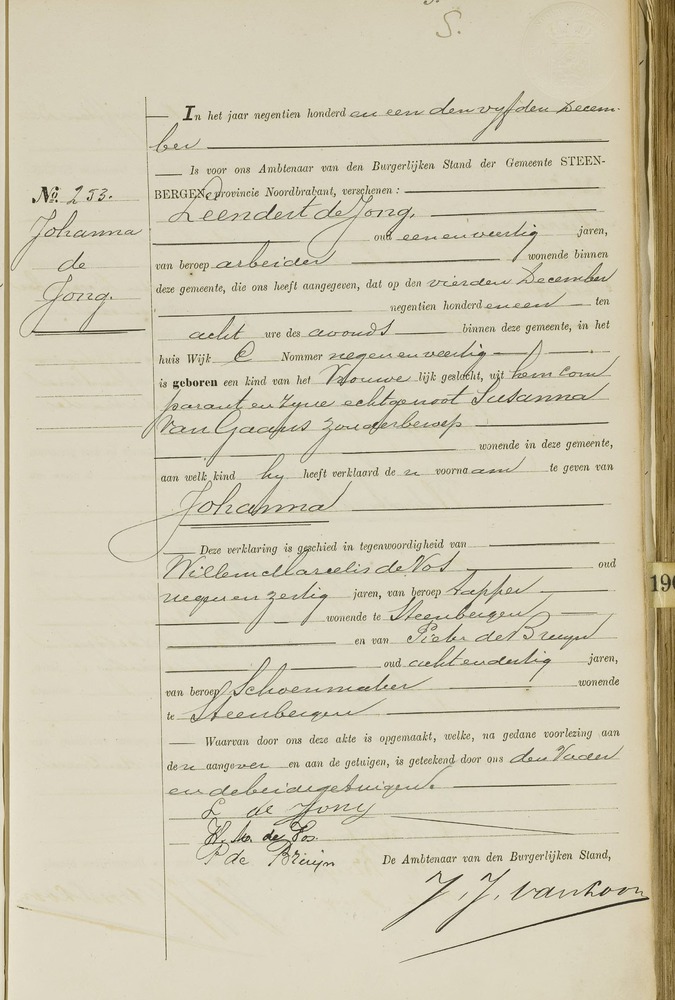 S.
In het jaar negentien honderd en een den vyfden Decem-
ber
Is voor ons Ambtenaar van den Burgerlijken Stand der Gemeente STEEN-
BERGEN, provincie Noordbrabant, verschenen :
No. 253.
Johanna
de
Jong.
Leendert de Jong.
oud eenenveertig jaren,
van beroep arbeider wonende binnen
deze gemeente, die ons heeft aangegeven, dat op den vierden December
negentien honderd en een ten
acht ure des avonds binnen deze gemeente, in het
huis Wijk C Nommer negenenveertig
is geboren een kind van het Vrouwelijk geslacht, uit hem com
parant en zyne echtgenoot Susanna
van Gaans zonder beroep
wonende in deze gemeente,
aan welk kind hy heeft verklaard den voornaam te geven van
Johanna
Deze verklaring is geschied in tegenwoordigheid van
Willem Marcelis de Vos oud
negenenzestig jaren, van beroep tapper
wonende te Steenbergen
en van Pieter de Bruyn
oud achtendertig jaren,
van beroep Schoenmaker wonende
te Steenbergen
Waarvan door ons deze akte is opgemaakt, welke, na gedane voorlezing aan
den aangever en aan de getuigen, is geteekend door ons den Vader
en de beide getuigen.
L de Jong
W. M. de Vos
P de Bruijn
De Ambtenaar van den Burgerlijken Stand,
J. J. van Loon
190